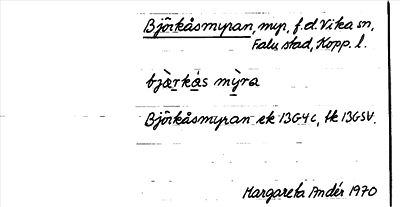 Björkåsmyran, myr, f.d. Vika sn,
Falu stad, Kopp. l.
bjärkås mỳra
Björkåsmyran ek 13G4c, tk 13GSV.
Margareta Andér 1970